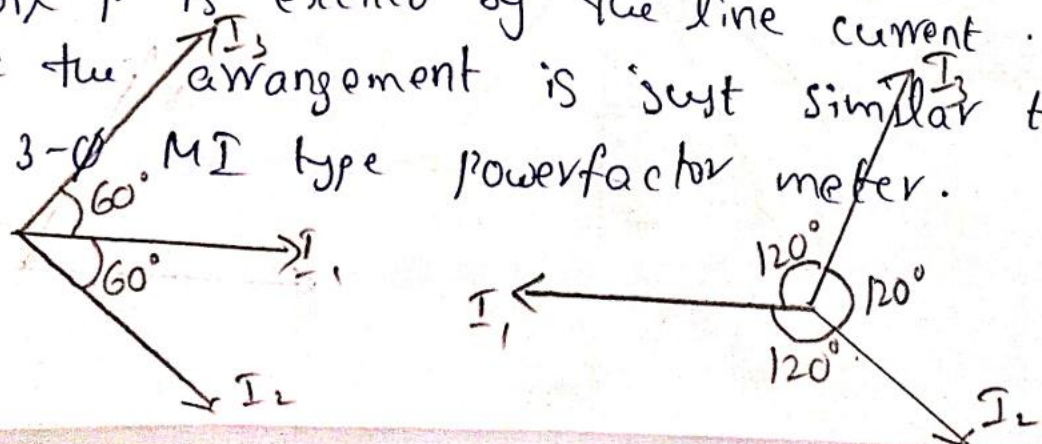 is excited by the line current.
the arrangement is just similar t
3-φ MI type powerfactor meter.
I₃
60°
I₁
60°
I₂
I₃
120°
120°
I₁
120°
I₂